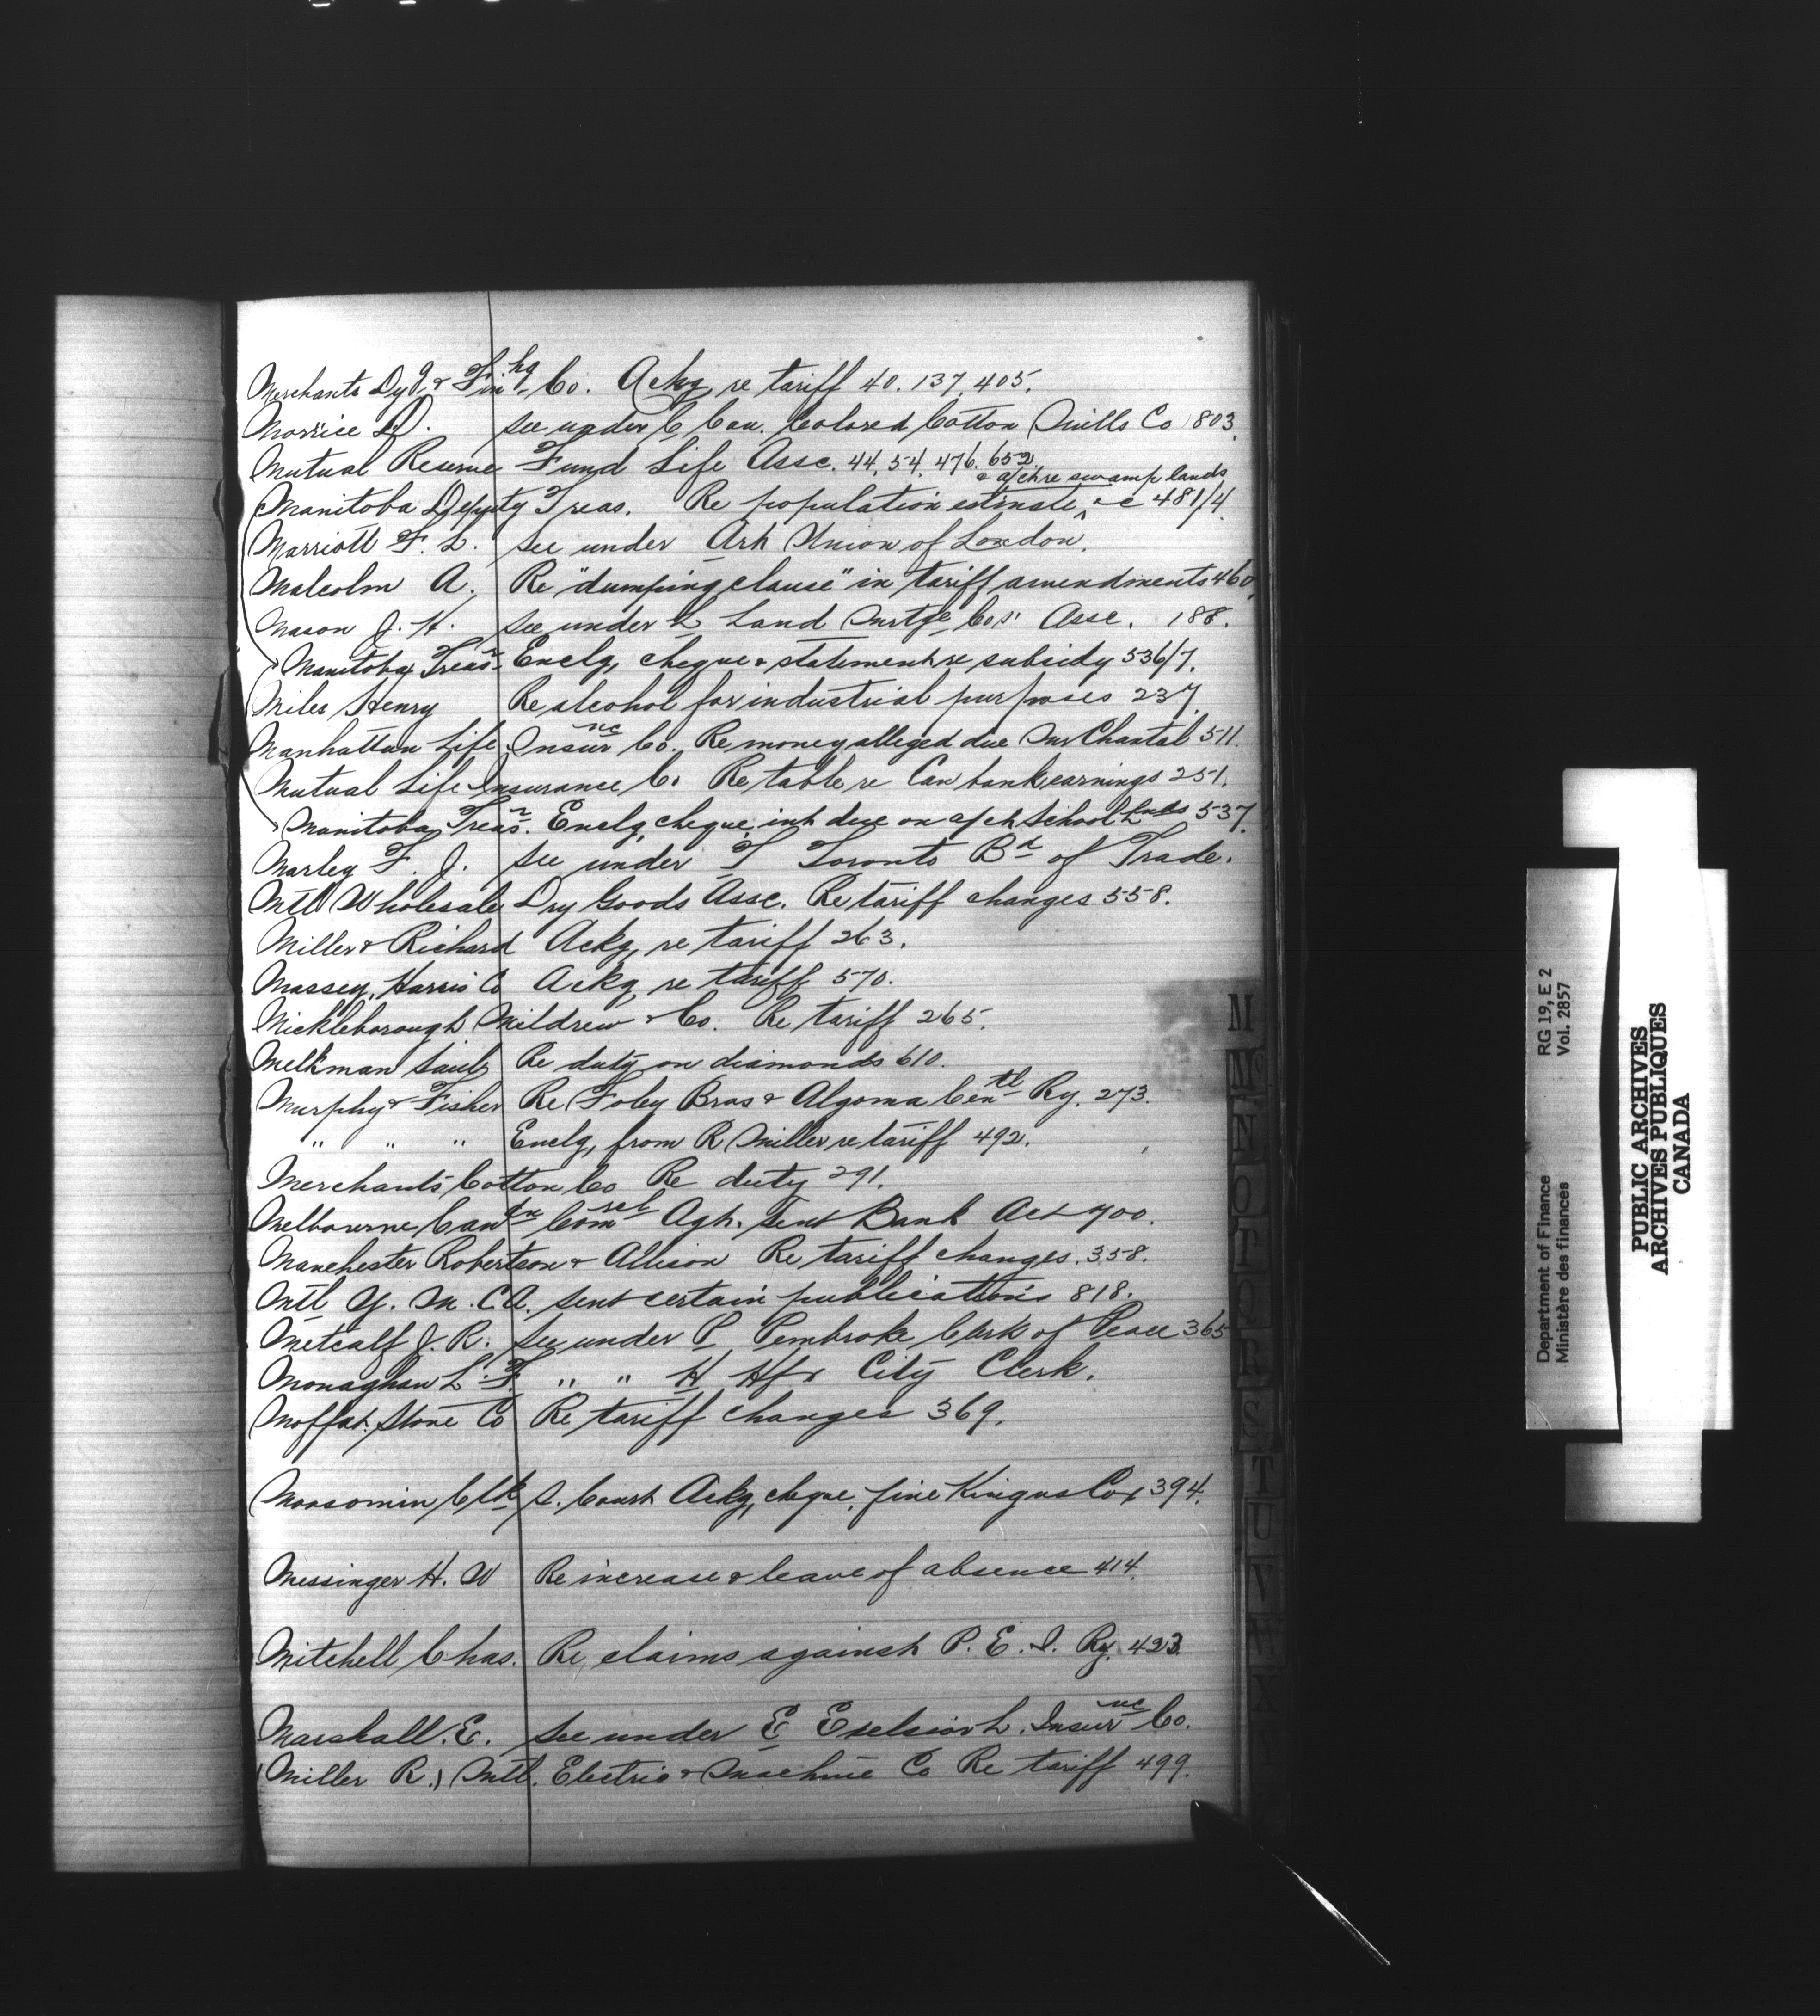 Merchants Dyg & Finhg Co. Ackg re tariff 40. 137. 405.
Morrice D. see under C Can. Colored Cotton Mills Co 803.
Mutual Reserve Fund Life Assc. 44, 54, 476. 652.
& a/c re swamp lands
Manitoba Deputy Treas. Re population estimate &c 481/4.
Marriott F. L. see under Art Union of London.
Malcolm A. Re "dumping clause" in tariff amendments 460.
Mason J. H. see under L Land Mrtge Cos' Assc. 188.
Manitoba Treasr. Enclg, cheque & statement re subsidy 536/7.
Miles Henry Re alcohol for industrial purposes 237.
Manhattan Life Insurnc Co. Re money alleged due Chantal 511.
Mutual Life Insurance Co Re table re Can bank earnings 251.
Manitoba Treasr. Enclg, cheque, int due on a/c School Lnds 537.
Marley F. J. see under T Toronto Bd of Trade.
Mtl Wholesale Dry Goods Assc. Re tariff changes 558.
Miller & Richard Ackg, re tariff 263.
Massey, Harris Co Ackg, re tariff 570.
Mickleborough Mildrew & Co. Re tariff 265.
Melkman Saul Re duty on diamonds 610.
Murphy & Fisher Re Foley Bros & Algoma Centl Ry. 273.
" " " Enclg, from R Miller re tariff 492.
Merchants Cotton Co Re duty 291.
Melbourne Candn Comrcl Agt. sent Bank Act 700.
Manchester Robertson & Allison Re tariff changes. 358.
Mtl Y. M. C. A. sent certain publications 818.
Metcalf J. R. see under P Pembroke Clerk of Peace 365
Monaghan L. F. " " H Hfx City Clerk.
Moffat Stove Co Re tariff changes 369.
Moosomin Clk S. Court Ackg, cheque, fine 394.
Messinger H. W Re increase & leave of absence 414.
Mitchell Chas. Re claims against P. E. I. Ry. 423.
Marshall. E. see under E Exelsior L. Insurnc Co.
(Miller R.) Mtl. Electric & Machine Co Re tariff 499.
M
Mc
N
O
T
Q
R
S
T
U
V
W
X
Department of Finance RG 19, E 2
Ministère des finances Vol. 2857
PUBLIC ARCHIVES
ARCHIVES PUBLIQUES
CANADA